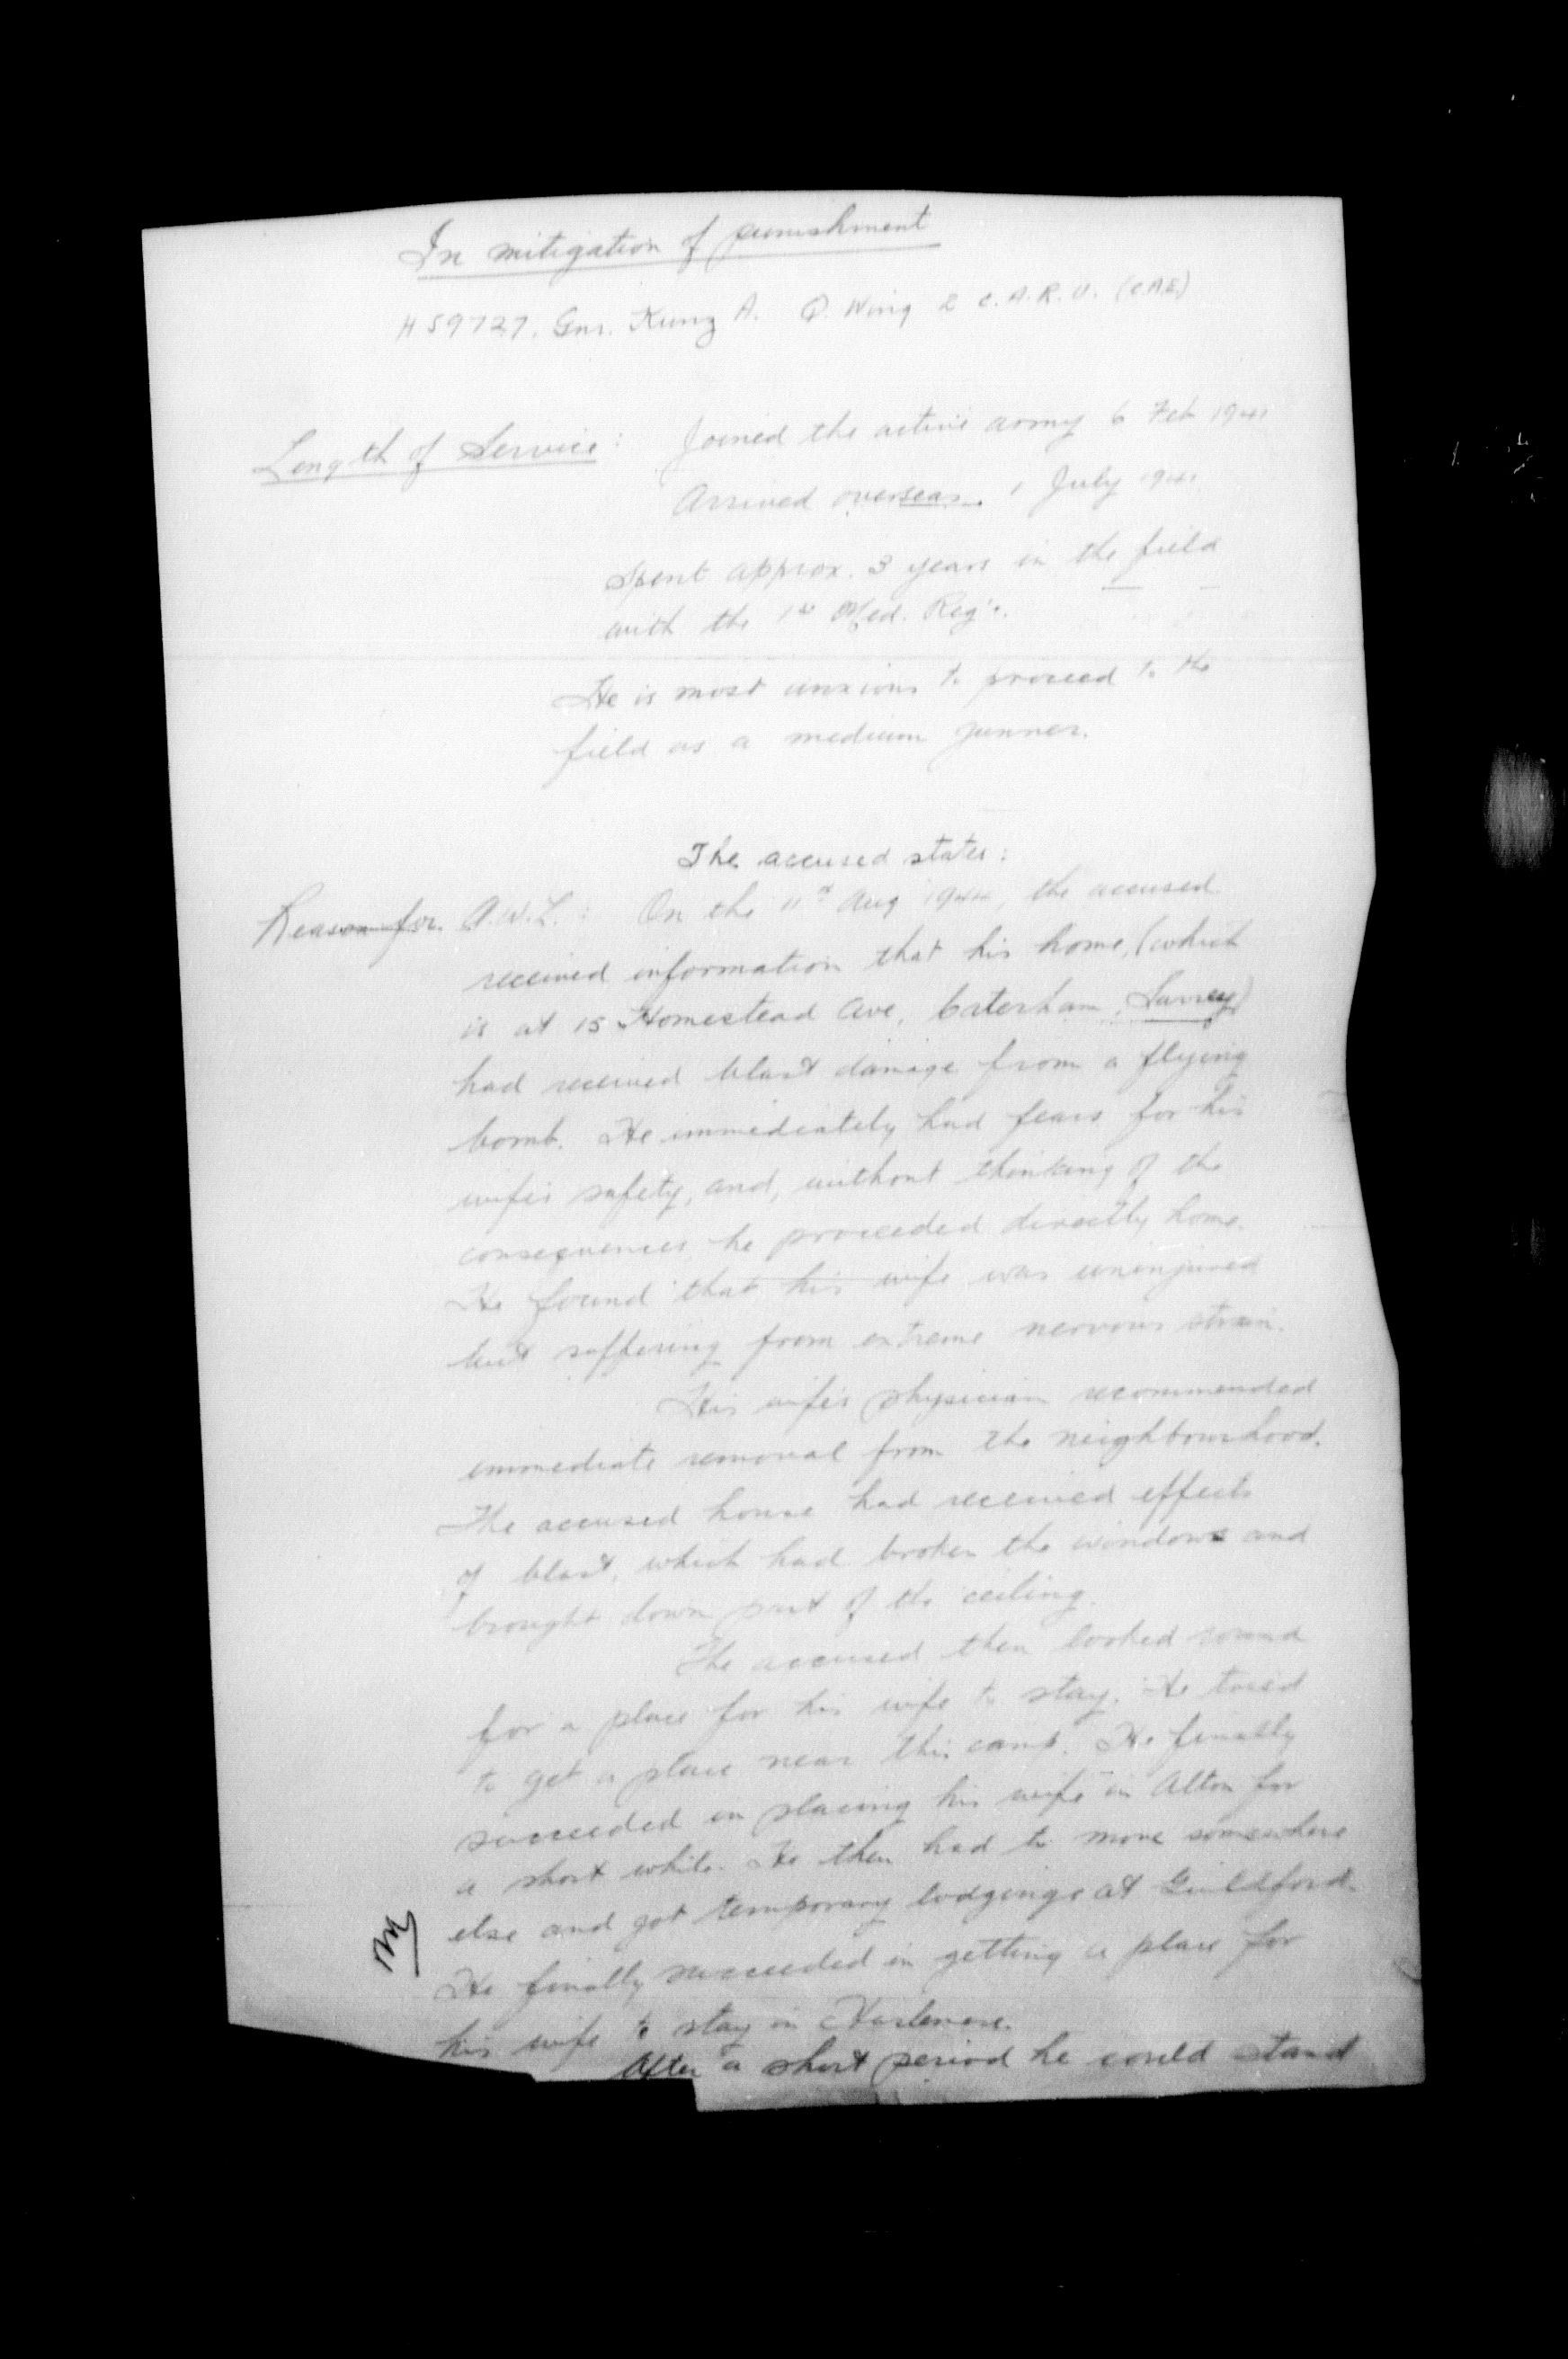 In mitigation of punishment
H59727. Gnr. Kung A. Q. Wing 2 C.A.R.U. (C.A.E.)
Length of Service: Joined the active army 6 Feb 1941
Arrived overseas. 1 July 1941
Spent approx. 3 years in the field
with the 1st Med. Reg't.
He is most anxious to proceed to the
field as a medium gunner.
The accused states:
Reason for A.W.L.: On the 11th Aug 1944, the accused
received information that his home, (which
is at 15 Homestead Ave, Caterham, Surrey)
had received blast damage from a flying
bomb. He immediately had fears for his
wife's safety, and, without thinking of the
consequences he proceeded directly home.
He found that his wife was uninjured
but suffering from extreme nervous strain.
His wife's physician recommended
immediate removal from the neighbourhood.
The accused house had received effects
of blast, which had broken the windows and
brought down part of the ceiling.
The accused then looked round
for a place for his wife to stay. He tried
to get a place near this camp. He finally
succeeded in placing his wife in Alton for
a short while. He then had to move somewhere
else and got temporary lodgings at Guildford.
He finally succeeded in getting a place for
his wife to stay in Haslemere.
After a short period he could stand